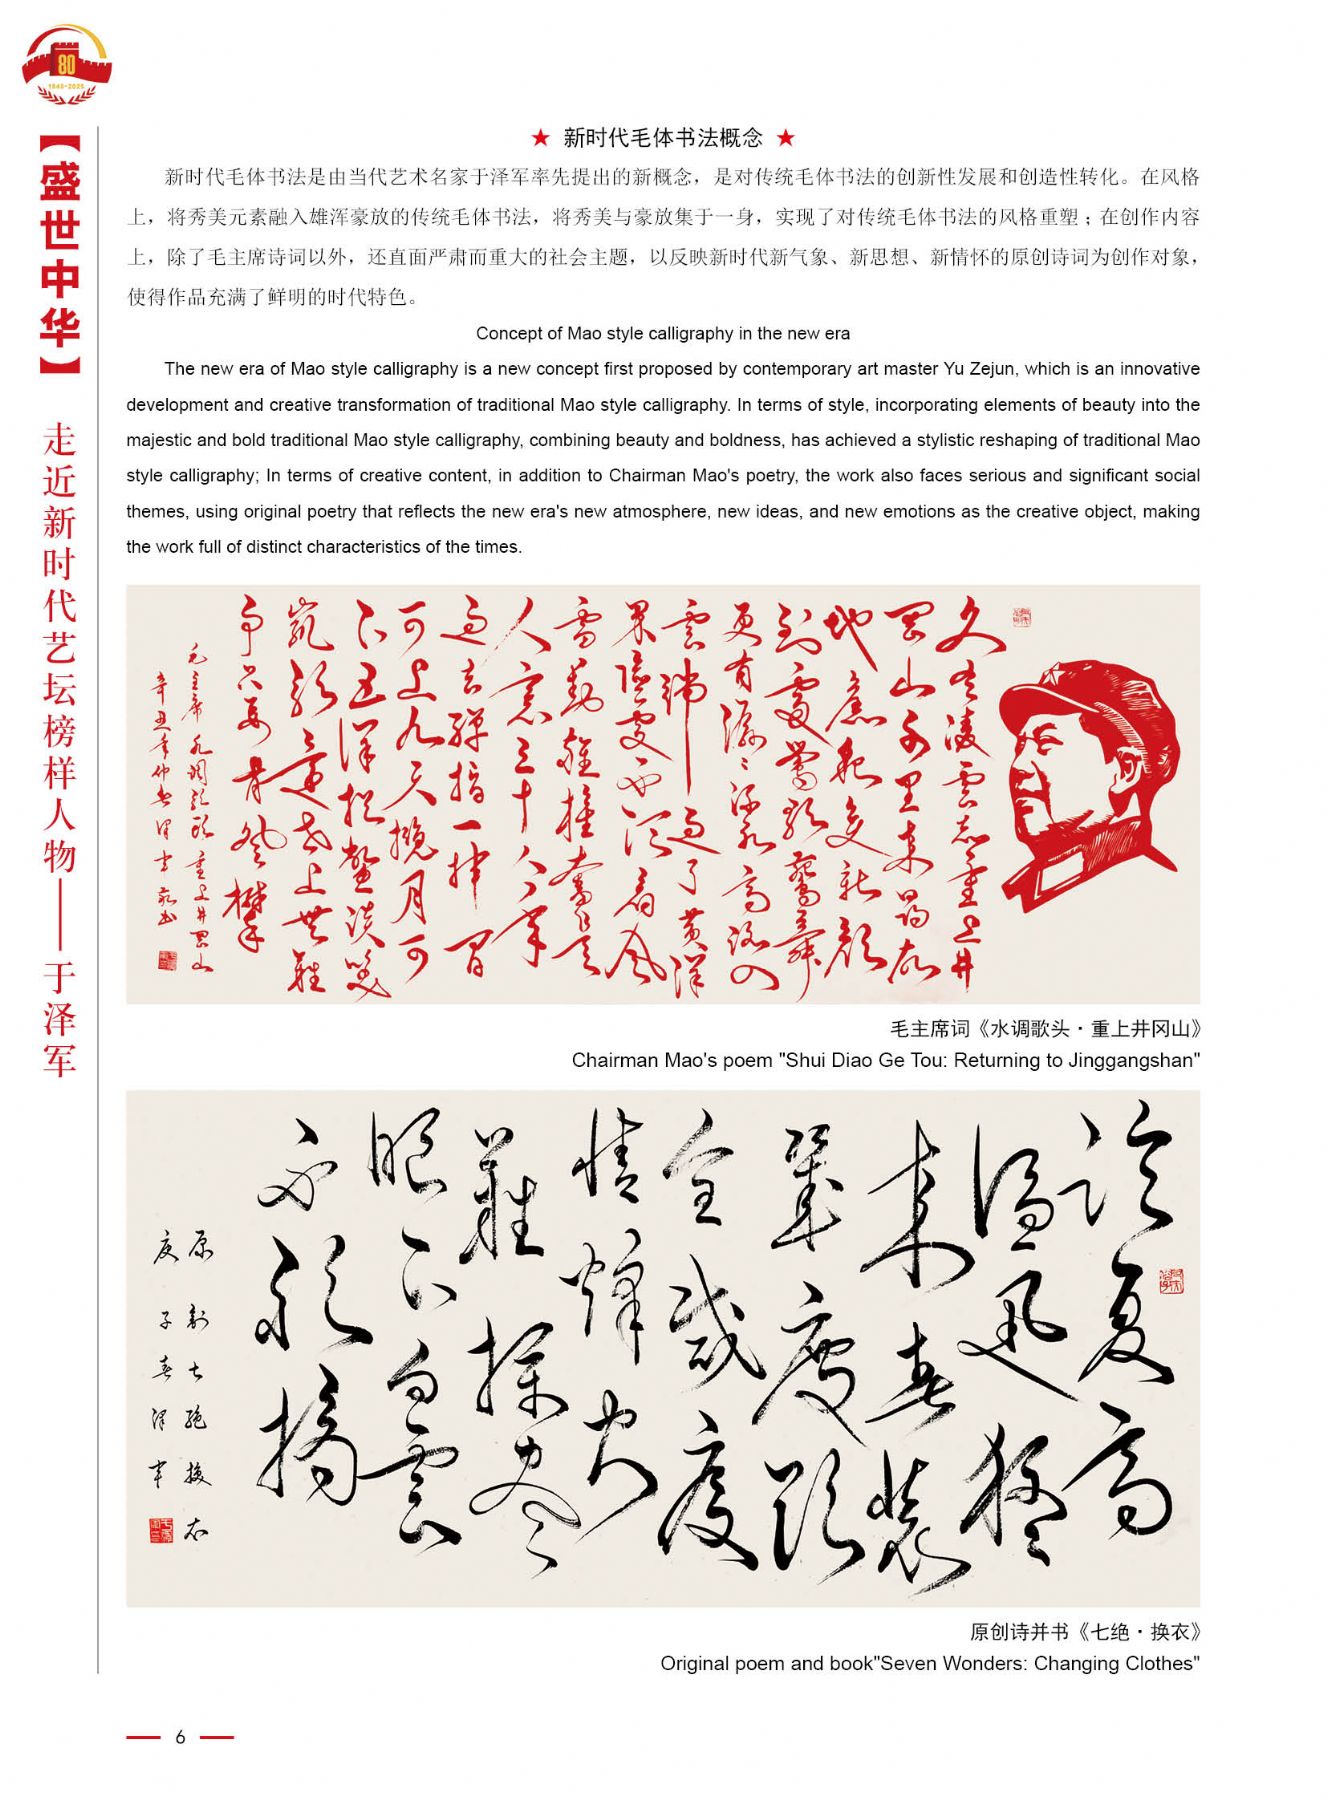 80
1945-2025
【盛世中华】
走近新时代艺坛榜样人物——于泽军
★ 新时代毛体书法概念 ★
新时代毛体书法是由当代艺术名家于泽军率先提出的新概念，是对传统毛体书法的创新性发展和创造性转化。在风格
上，将秀美元素融入雄浑豪放的传统毛体书法，将秀美与豪放集于一身，实现了对传统毛体书法的风格重塑；在创作内容
上，除了毛主席诗词以外，还直面严肃而重大的社会主题，以反映新时代新气象、新思想、新情怀的原创诗词为创作对象，
使得作品充满了鲜明的时代特色。
Concept of Mao style calligraphy in the new era
The new era of Mao style calligraphy is a new concept first proposed by contemporary art master Yu Zejun, which is an innovative
development and creative transformation of traditional Mao style calligraphy. In terms of style, incorporating elements of beauty into the
majestic and bold traditional Mao style calligraphy, combining beauty and boldness, has achieved a stylistic reshaping of traditional Mao
style calligraphy; In terms of creative content, in addition to Chairman Mao's poetry, the work also faces serious and significant social
themes, using original poetry that reflects the new era's new atmosphere, new ideas, and new emotions as the creative object, making
the work full of distinct characteristics of the times.
久有凌雲志重上井
岡山千里来尋故
地舊貌变新颜
到處鶯歌燕舞
更有潺潺流水高路入
雲端過了黄洋
界險處不须看風
雷動旌旗奮是
人寰三十八年
過去彈指一挥間
可上九天揽月可
下五洋捉鳖谈笑
凱歌還世上無難
事只要肯登攀
毛主席水调歌頭重上井岡山
辛丑年仲春泽军敬书
毛主席词《水调歌头·重上井冈山》
Chairman Mao's poem "Shui Diao Ge Tou: Returning to Jinggangshan"
眼下白雲
原創七絕換衣
庚子春泽军
原创诗并书《七绝·换衣》
Original poem and book"Seven Wonders: Changing Clothes"
6